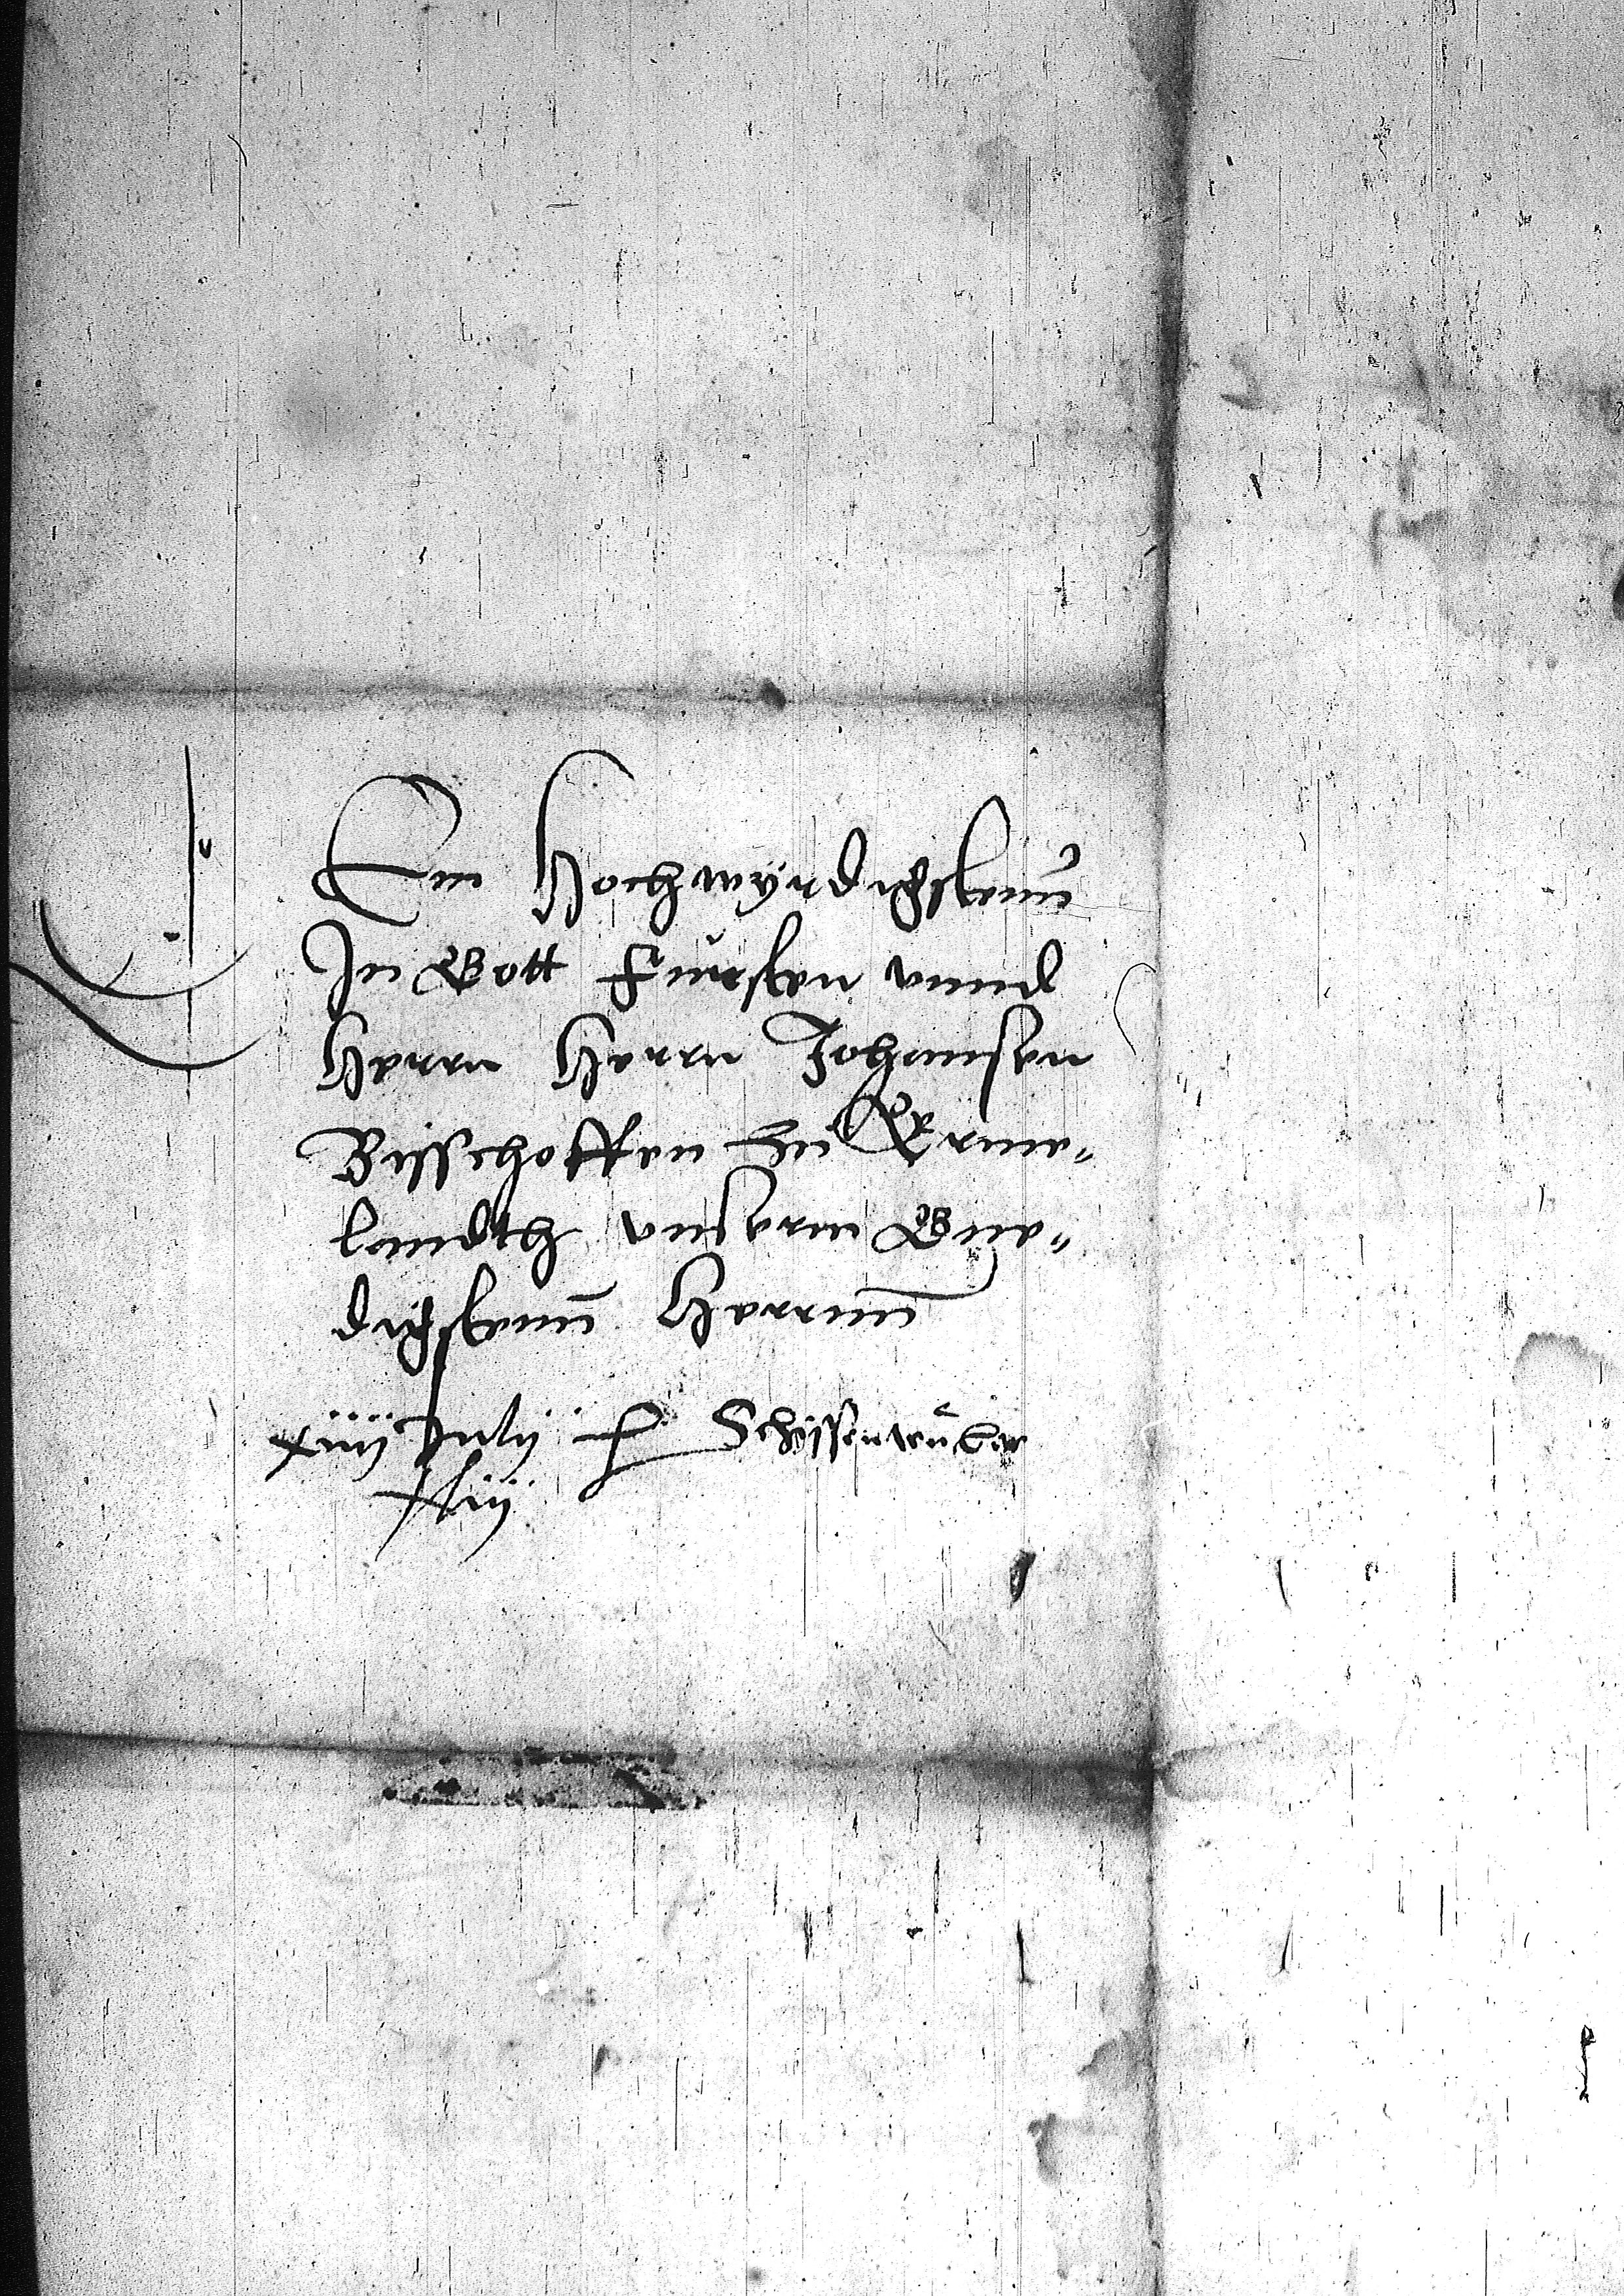 Dem Hochwyrdigstenn
In Gott Fursten vnnd
Herrn Herrn Johannsen
Bisschoffen zu Erme-
landth vnserm Gne-
digstenn Herrnn
xiiij Julij p Schissenweuber
xliij